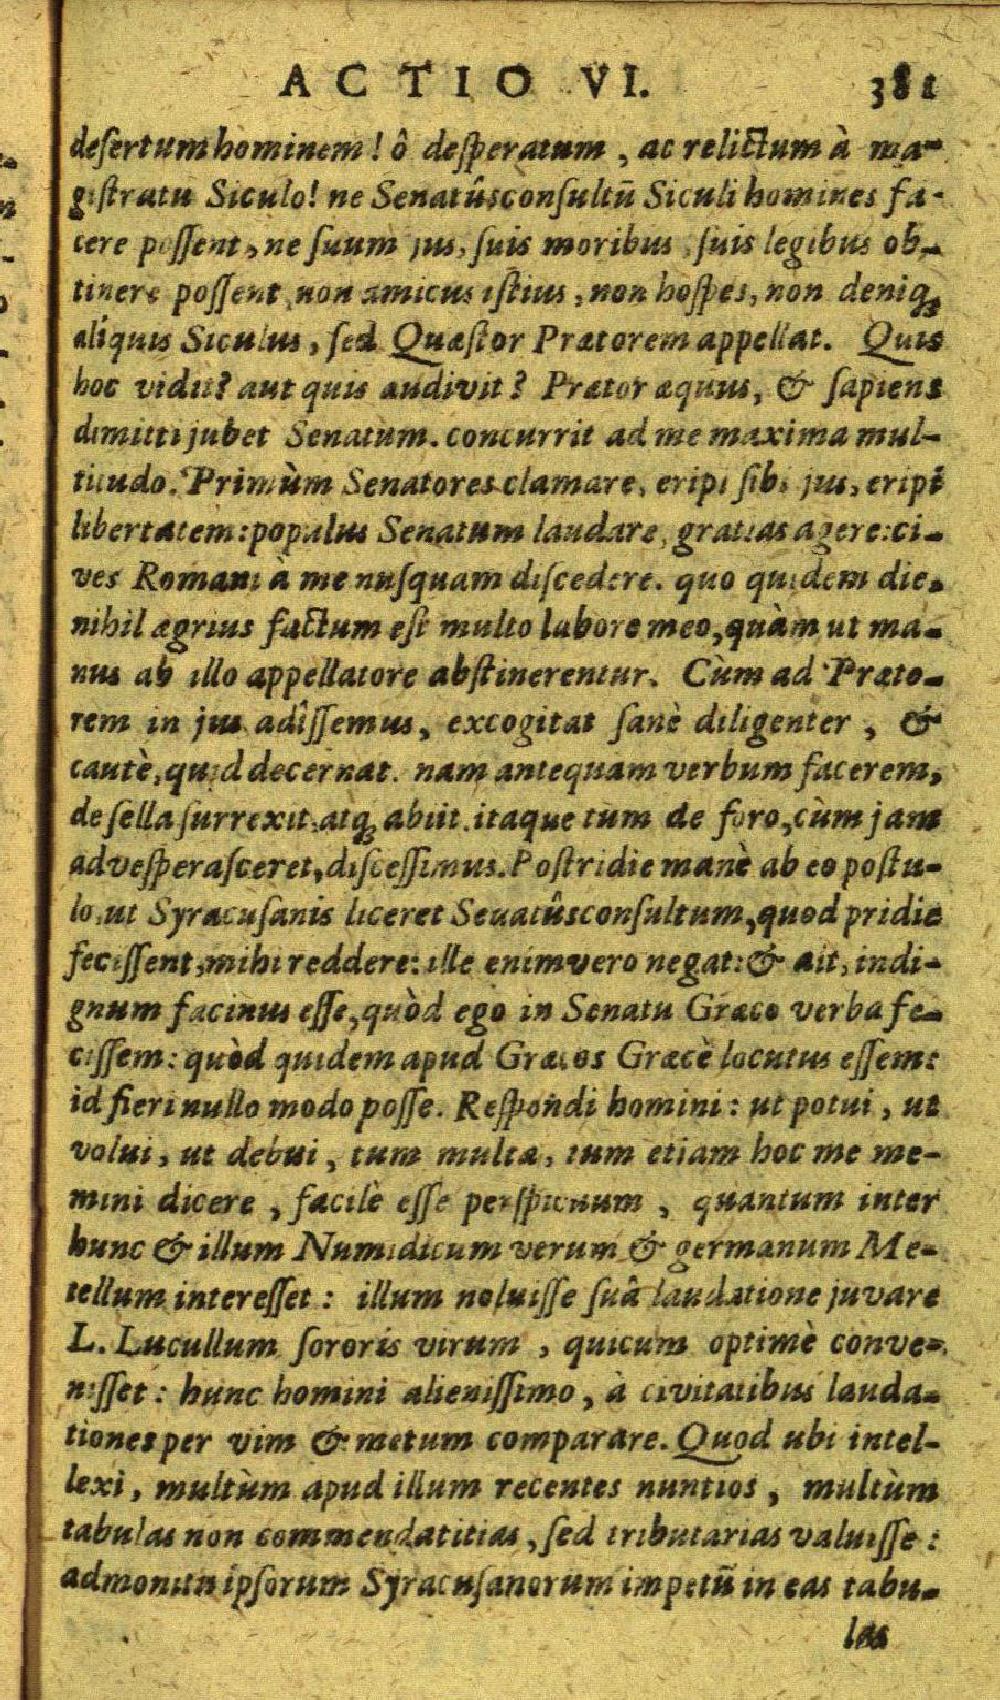 ACTIO VI. 381
desertum hominem! ô desperatum, ac relictum à ma-
gistratu Siculo! ne Senatûsconsultū Siculi homines fa-
cere possent, ne suum jus, suis moribus, suis legibus ob-
tinere possent, non amicus istius, non hospes, non deniq;
aliquis Siculus, sed Quæstor Prætorem appellat. Quis
hoc vidit? aut quis audivit? Prætor æquus, & sapiens
dimitti jubet Senatum. concurrit ad me maxima mul-
titudo. Primùm Senatores clamare, eripi sibi jus, eripi
libertatem: populus Senatum laudare, gratias agere: ci-
ves Romani à me nusquam discedere. quo quidem die
nihil ægrius factum est multo labore meo, quàm ut ma-
nus ab illo appellatore abstinerentur. Cùm ad Præto-
rem in jus adîssemus, excogitat sanè diligenter, &
cautè, quid decernat. nam antequam verbum facerem,
de sella surrexit, atq; abiit. itaque tùm de foro, cùm jam
advesperasceret, discessimus. Postridie manè ab eo postu-
lo, ut Syracusanis liceret Seuatûsconsultum, quod pridie
fecissent, mihi reddere: ille enimvero negat: & ait, indi-
gnum facinus esse, quòd ego in Senatu Græco verba fe-
cissem: quòd quidem apud Græcos Græcè locutus essem:
id fieri nullo modo posse. Respondi homini: ut potui, ut
volui, ut debui, tum multa, tum etiam hoc me me-
mini dicere, facilè esse perspicuum, quantum inter
hunc & illum Numidicum verum & germanum Me-
tellum interesset: illum noluisse suâ laudatione juvare
L. Lucullum sororis virum, quicum optimè conve-
nisset: hunc homini alienissimo, à civitatibus lauda-
tiones per vim & metum comparare. Quod ubi intel-
lexi, multùm apud illum recentes nuntios, multùm
tabulas non commendatitias, sed tributarias valuisse:
admonitu ipsorum Syracusanorum impetū in eas tabu-
las